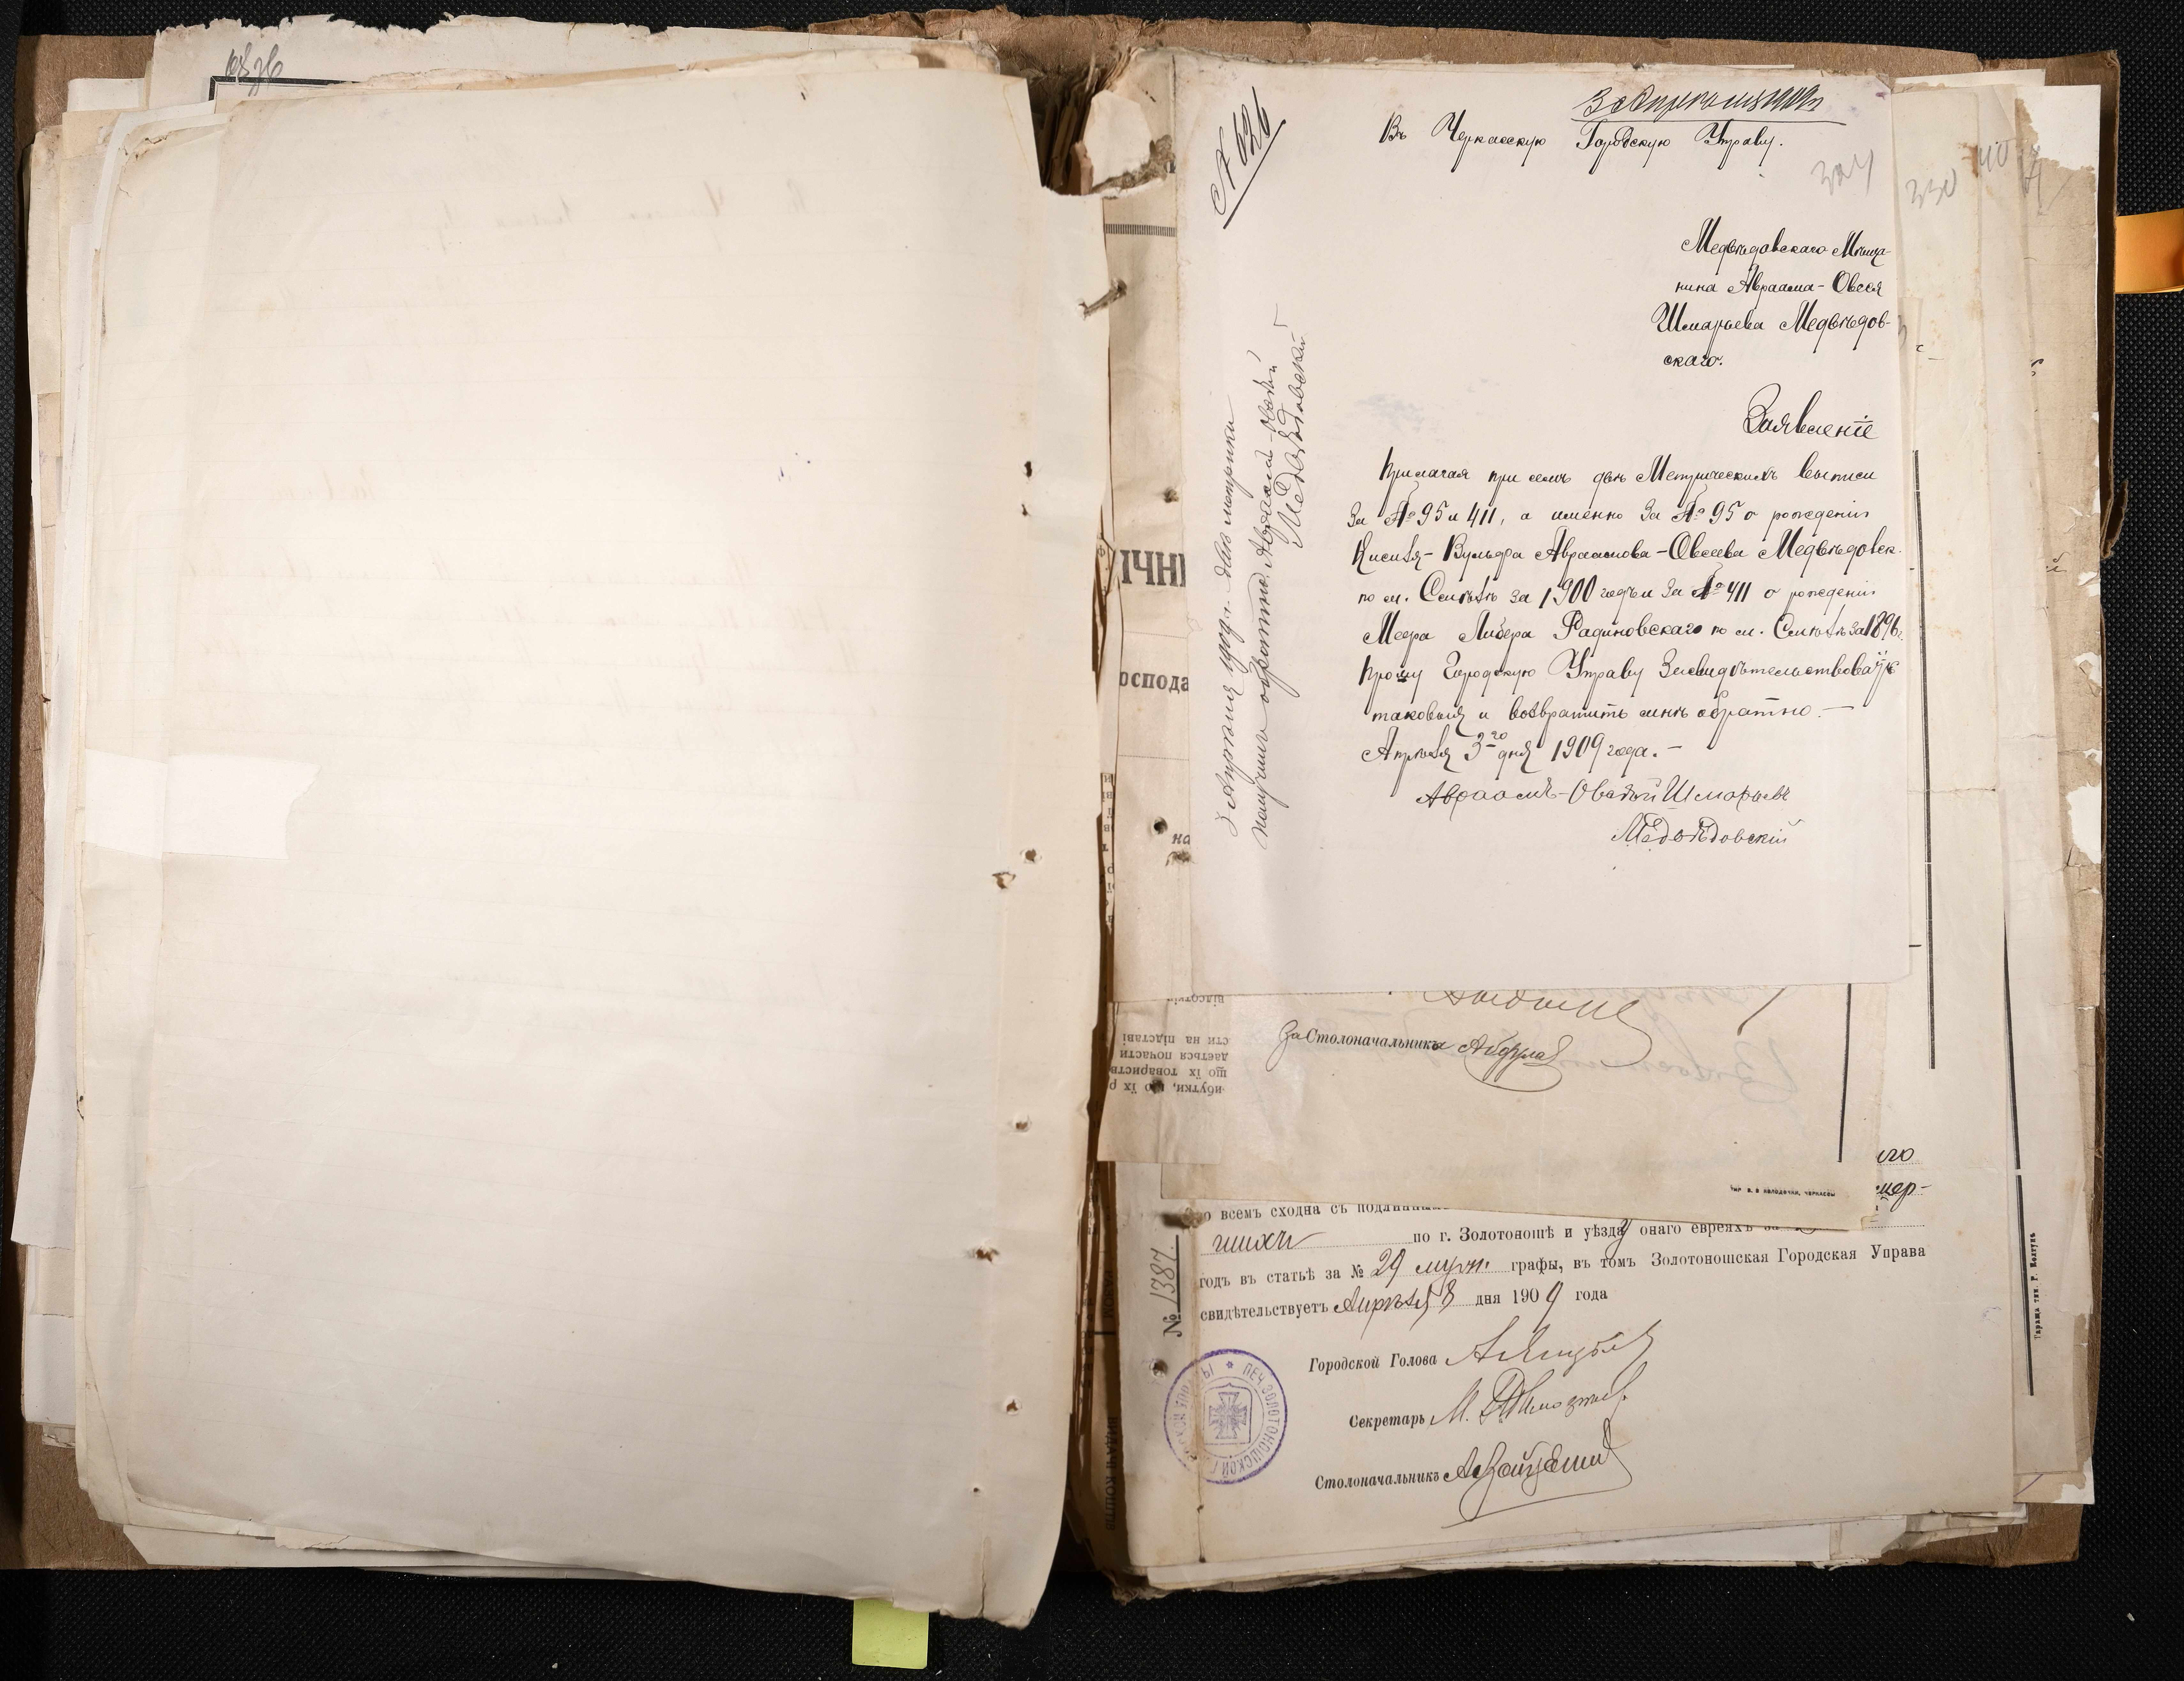 № 626
Въ Черкасскую Городскую Управу.
324
330
Медвѣдовскаго Мѣща-
нина Авраама-Овсея
Шмарьева Медвѣдов-
скаго.
Заявленіе
Прилагая при семъ двѣ Метрическихъ выписи
за № 95 и 411, а именно за № 95 о рожденіи
Кисиля-Вульфа Авраамова-Овсеева Медвѣдовск.
по м. Смѣлѣ за 1900 годъ и за № 411 о рожденіи
Меера Либера Радиновскаго по м. Смѣлѣ за 1896 г.
прошу Городскую Управу Засвидѣтельствовать
таковыя и возвратить мнѣ обратно. —
Апрѣля 3го дня 1909 года. —
Авраамъ-Овсѣй Шмарьевъ
Медвѣдовскій
3 Апрѣля 1909 г. двѣ метрики
получилъ обратно Авраамъ-Овсѣй
Медвѣдовскій
ІЧНІ
оспода
на
відсотків
сти на підставі
дається почасти
що їх товариств
ибутки, що їх р
За Столоначальника
Тир. В. В. Колодочки, Черкассы
его
мер-
о всемъ сходна съ подлинн
шихъ по г. Золотоношѣ и уѣзду онаго евреяхъ за
годъ въ статьѣ за № 29 муж. графы, въ томъ Золотоношская Городская Управа
свидѣтельствуетъ Апрѣля 8 дня 1909 года
№ 1387.
Городской Голова
Секретарь М.
Столоначальникъ
ПЕЧ. ЗОЛОТОНОШСКОЙ ГОРОДСКОЙ УПРАВЫ
Тараща тип. Г. Волгунъ